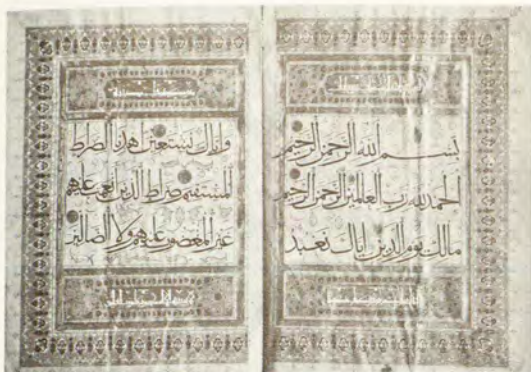 بسم الله الرحمن الرحيم
الحمد لله رب العالمين الرحمن الرحيم
مالك يوم الدين اياك نعبد
واياك نستعين اهدنا الصراط
المستقيم صراط الذين انعمت عليهم
غير المغضوب عليهم ولا الضالين